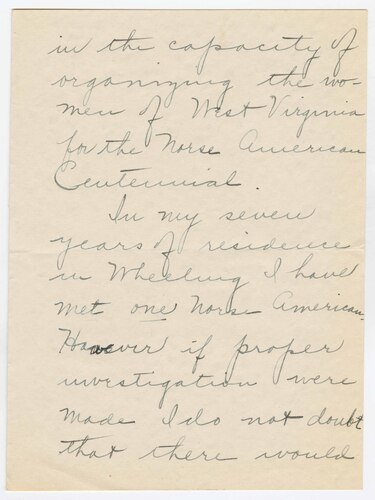 in the capacity of
organizing the wo-
men of West Virginia
for the Norse American
Centennial.
In my seven
years of residence
in Wheeling I have
met one Norse American.
However if proper
investigation were
made I do not doubt
that there would